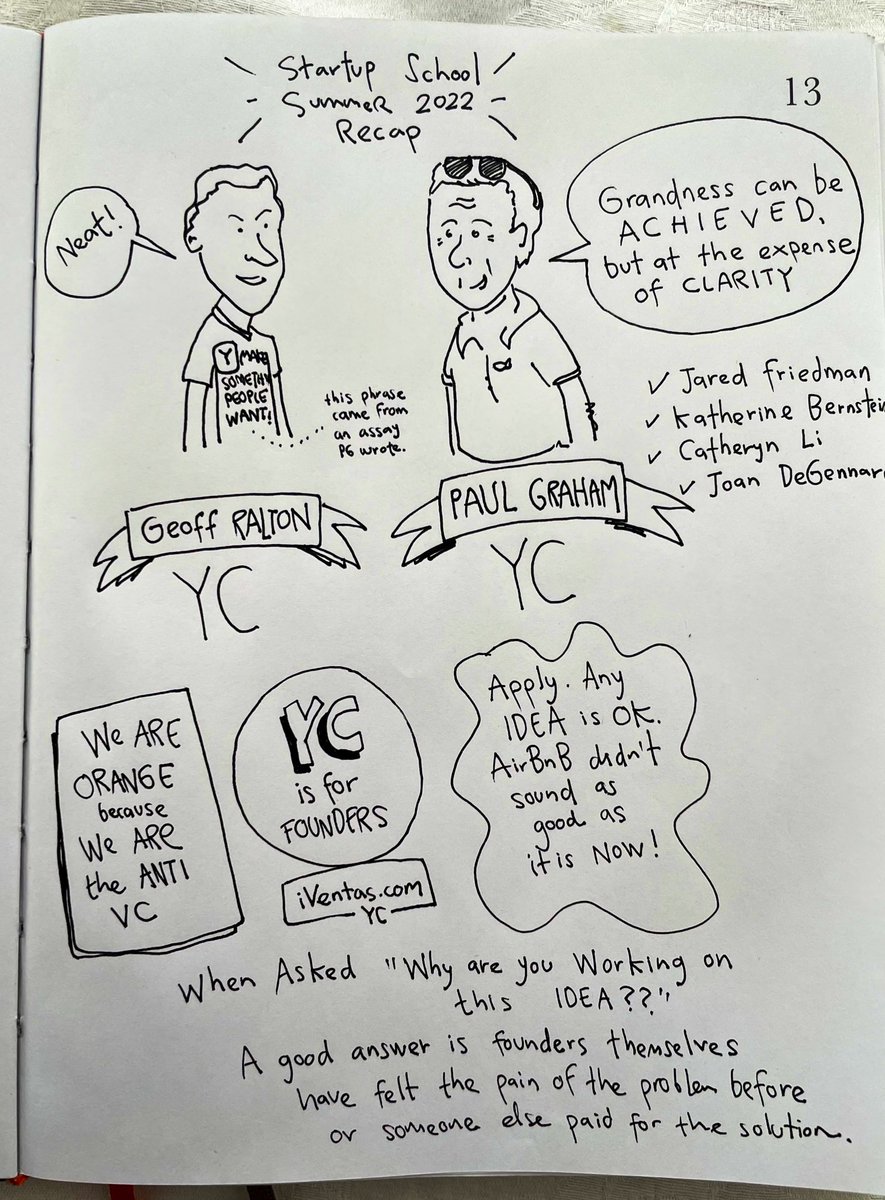 Startup School
Summer 2022
Recap
13
Neat!
Grandness can be
ACHIEVED,
but at the expense
of CLARITY
Y MAKE
SOMETHI
PEOPLE
WANT!
this phrase
came from
an assay
PG wrote.
✓ Jared friedman
✓ Katherine Bernstein
✓ Catheryn Li
✓ Joan DeGennar
Geoff RALTON
YC
PAUL GRAHAM
YC
We ARE
ORANGE
because
We ARE
the ANTI
VC
YC
is for
FOUNDERS
iVentas.com
YC
Apply. Any
IDEA is OK.
AirBnB didn't
sound as
good as
it is NOW!
When Asked "Why are you Working on
this IDEA??"
A good answer is founders themselves
have felt the pain of the problem before
or someone else paid for the solution.